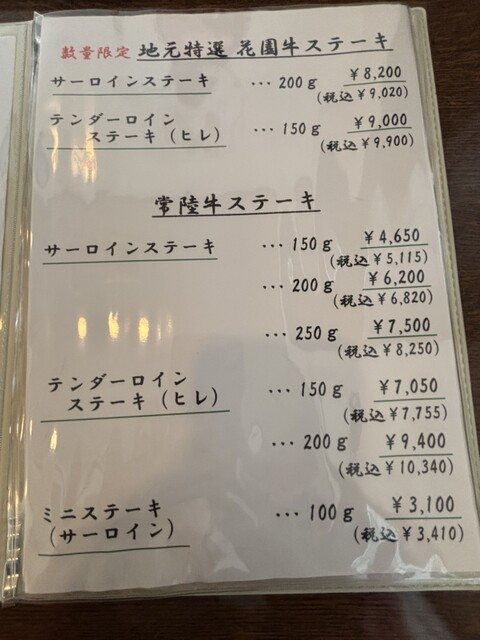 数量限定 地元特選 花園牛ステーキ
サーロインステーキ ･･･ 200g ¥8,200
(税込¥9,020)
テンダーロイン
ステーキ(ヒレ) ･･･ 150g ¥9,000
(税込¥9,900)
常陸牛ステーキ
サーロインステーキ ･･･ 150g ¥4,650
(税込¥5,115)
･･･ 200g ¥6,200
(税込¥6,820)
･･･ 250g ¥7,500
(税込¥8,250)
テンダーロイン
ステーキ(ヒレ) ･･･ 150g ¥7,050
(税込¥7,755)
･･･ 200g ¥9,400
(税込¥10,340)
ミニステーキ
(サーロイン) ･･･ 100g ¥3,100
(税込¥3,410)